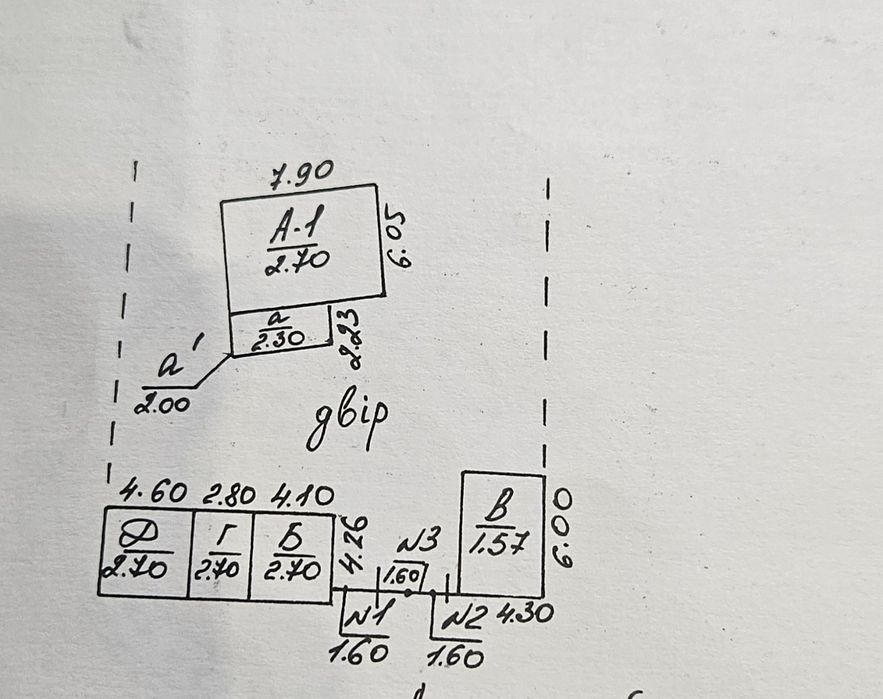 7.90
А-1
2.70
6.05
а
2.30
2.23
а'
2.00
двір
4.60 2.80 4.10
Д
2.70
Г
2.70
Б
2.70
4.26
N3
1.60
В
1.57
6.00
N1
1.60
N2
1.60
4.30